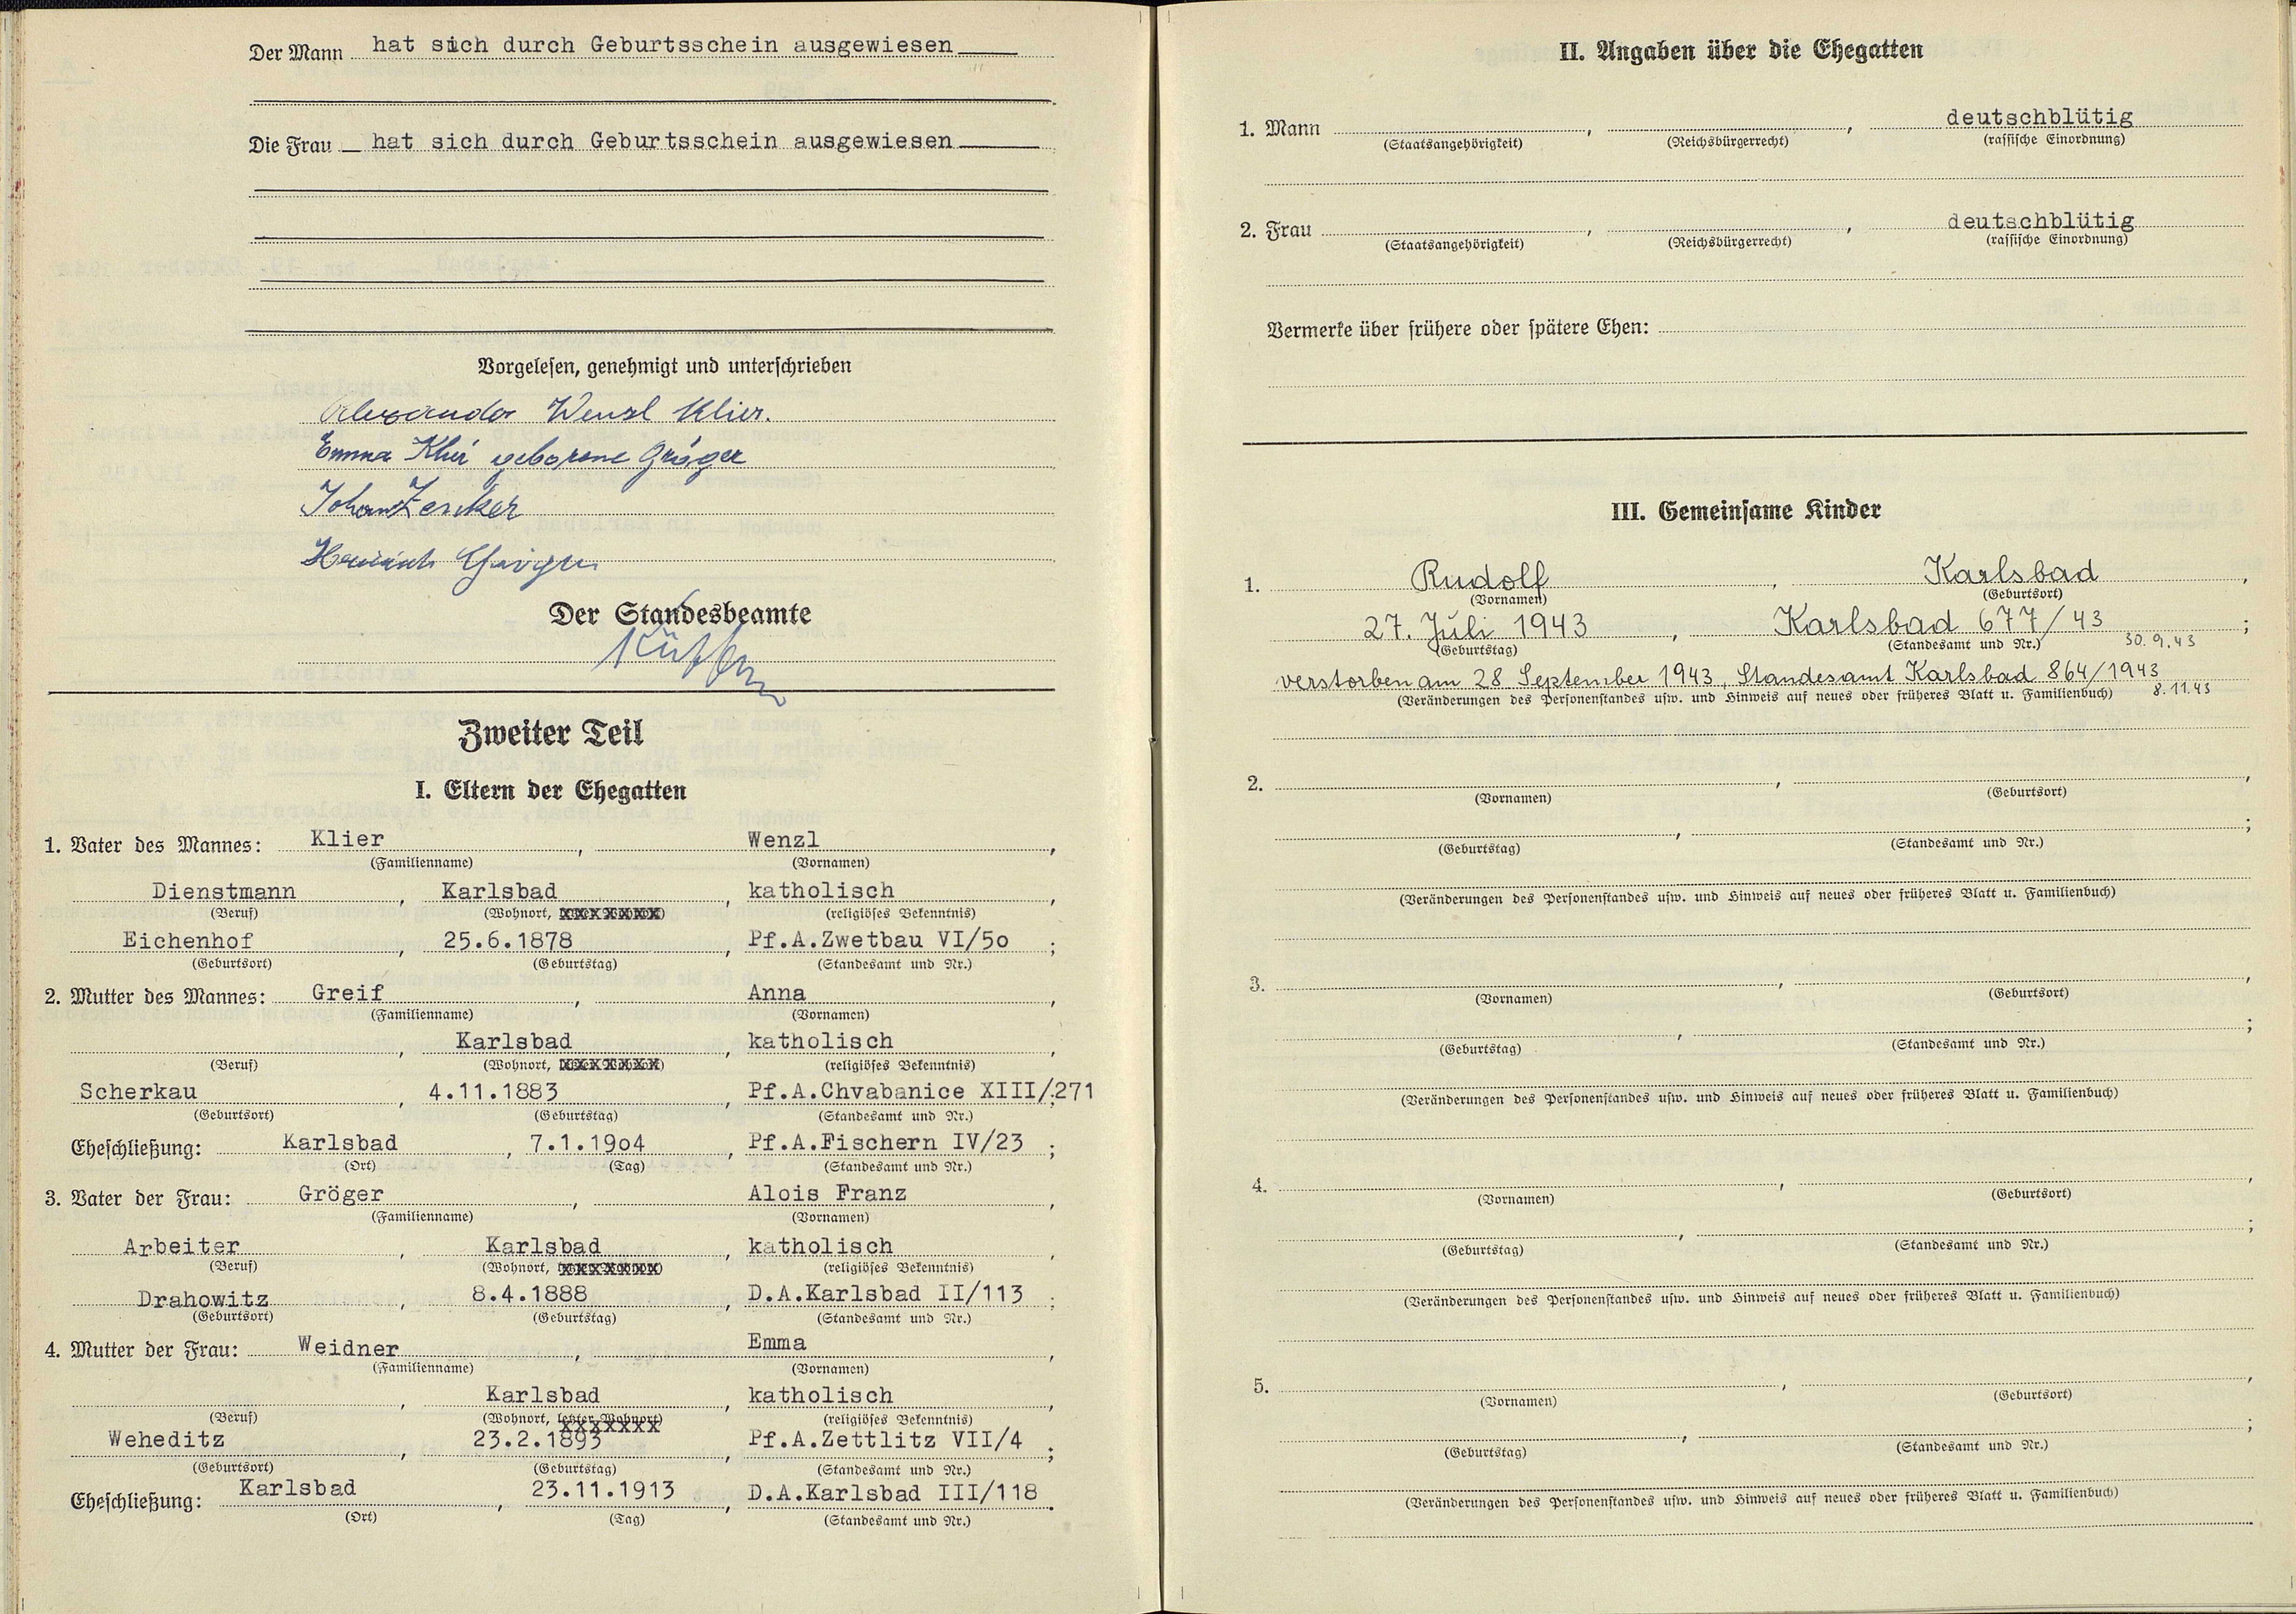 Der Mann hat sich durch Geburtsschein ausgewiesen
Die Frau hat sich durch Geburtsschein ausgewiesen
Vorgelesen, genehmigt und unterschrieben
Alexander Wenzl Klier.
Emma Klier geborene Gröger
Johann Zenker
Heinrich
Der Standesbeamte
Zweiter Teil
I. Eltern der Ehegatten
1. Vater des Mannes: Klier, Wenzl,
(Familienname) (Vornamen)
Dienstmann, Karlsbad, katholisch,
(Beruf) (Wohnort, xxxxxxx) (religiöses Bekenntnis)
Eichenhof, 25.6.1878, Pf.A.Zwetbau VI/5o;
(Geburtsort) (Geburtstag) (Standesamt und Nr.)
2. Mutter des Mannes: Greif, Anna,
(Familienname) (Vornamen)
, Karlsbad, katholisch,
(Beruf) (Wohnort, xxxxxxx) (religiöses Bekenntnis)
Scherkau, 4.11.1883, Pf.A.Chvabanice XIII/271;
(Geburtsort) (Geburtstag) (Standesamt und Nr.)
Eheschließung: Karlsbad, 7.1.19o4, Pf.A.Fischern IV/23;
(Ort) (Tag) (Standesamt und Nr.)
3. Vater der Frau: Gröger, Alois Franz,
(Familienname) (Vornamen)
Arbeiter, Karlsbad, katholisch,
(Beruf) (Wohnort, xxxxxxx) (religiöses Bekenntnis)
Drahowitz, 8.4.1888, D.A.Karlsbad II/113;
(Geburtsort) (Geburtstag) (Standesamt und Nr.)
4. Mutter der Frau: Weidner, Emma,
(Familienname) (Vornamen)
, Karlsbad, katholisch,
(Beruf) (Wohnort, letzter Wohnort) (religiöses Bekenntnis)
xxxxxxx
Weheditz, 23.2.1893, Pf.A.Zettlitz VII/4;
(Geburtsort) (Geburtstag) (Standesamt und Nr.)
Eheschließung: Karlsbad, 23.11.1913, D.A.Karlsbad III/118.
(Ort) (Tag) (Standesamt und Nr.)
II. Angaben über die Ehegatten
1. Mann , , deutschblütig
(Staatsangehörigkeit) (Reichsbürgerrecht) (rassische Einordnung)
2. Frau , , deutschblütig
(Staatsangehörigkeit) (Reichsbürgerrecht) (rassische Einordnung)
Vermerke über frühere oder spätere Ehen:
III. Gemeinsame Kinder
1. Rudolf, Karlsbad,
(Vornamen) (Geburtsort)
27. Juli 1943, Karlsbad 677/43;
(Geburtstag) (Standesamt und Nr.) 30.9.43
verstorben am 28. September 1943, Standesamt Karlsbad 864/1943
(Veränderungen des Personenstandes usw. und Hinweis auf neues oder früheres Blatt u. Familienbuch) 8.11.43
2. , ,
(Vornamen) (Geburtsort)
, ;
(Geburtstag) (Standesamt und Nr.)
(Veränderungen des Personenstandes usw. und Hinweis auf neues oder früheres Blatt u. Familienbuch)
3. , ,
(Vornamen) (Geburtsort)
, ;
(Geburtstag) (Standesamt und Nr.)
(Veränderungen des Personenstandes usw. und Hinweis auf neues oder früheres Blatt u. Familienbuch)
4. , ,
(Vornamen) (Geburtsort)
, ;
(Geburtstag) (Standesamt und Nr.)
(Veränderungen des Personenstandes usw. und Hinweis auf neues oder früheres Blatt u. Familienbuch)
5. , ,
(Vornamen) (Geburtsort)
, ;
(Geburtstag) (Standesamt und Nr.)
(Veränderungen des Personenstandes usw. und Hinweis auf neues oder früheres Blatt u. Familienbuch)